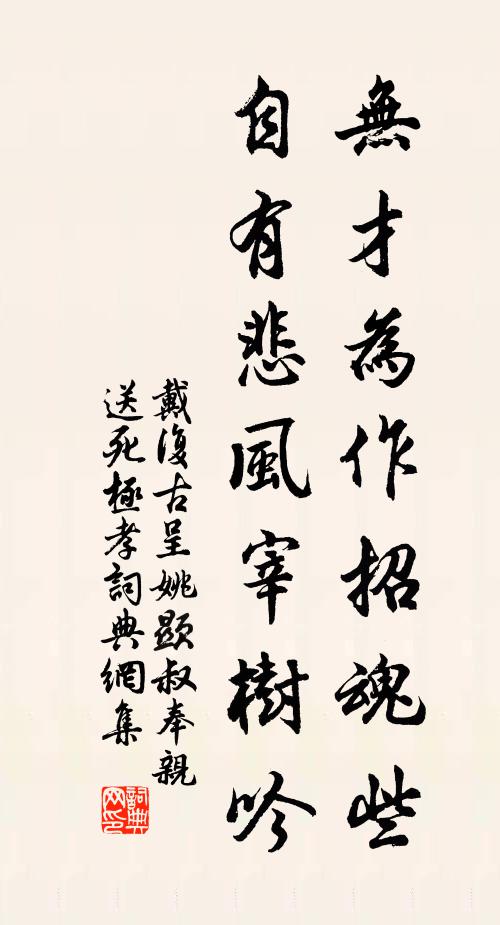 無才為作招魂些
自有悲風宰樹吟
戴復古呈姚顯叔奉親
送死極孝詞典網集
詞典網印